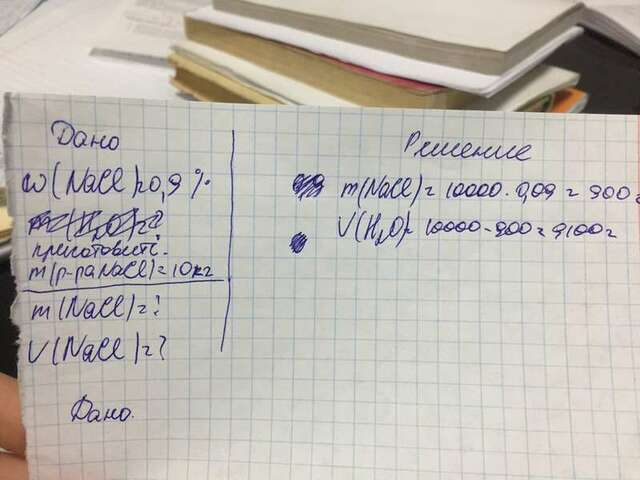 Дано
ω(NaCl)=0,9%
m(H₂O)=?
приготовить:
m(р-ра NaCl)=10кг
m(NaCl)=?
V(NaCl)=?
Дано.
Решение
m(NaCl)= 10000·0,09=900г
V(H₂O)= 10000-900=9100г